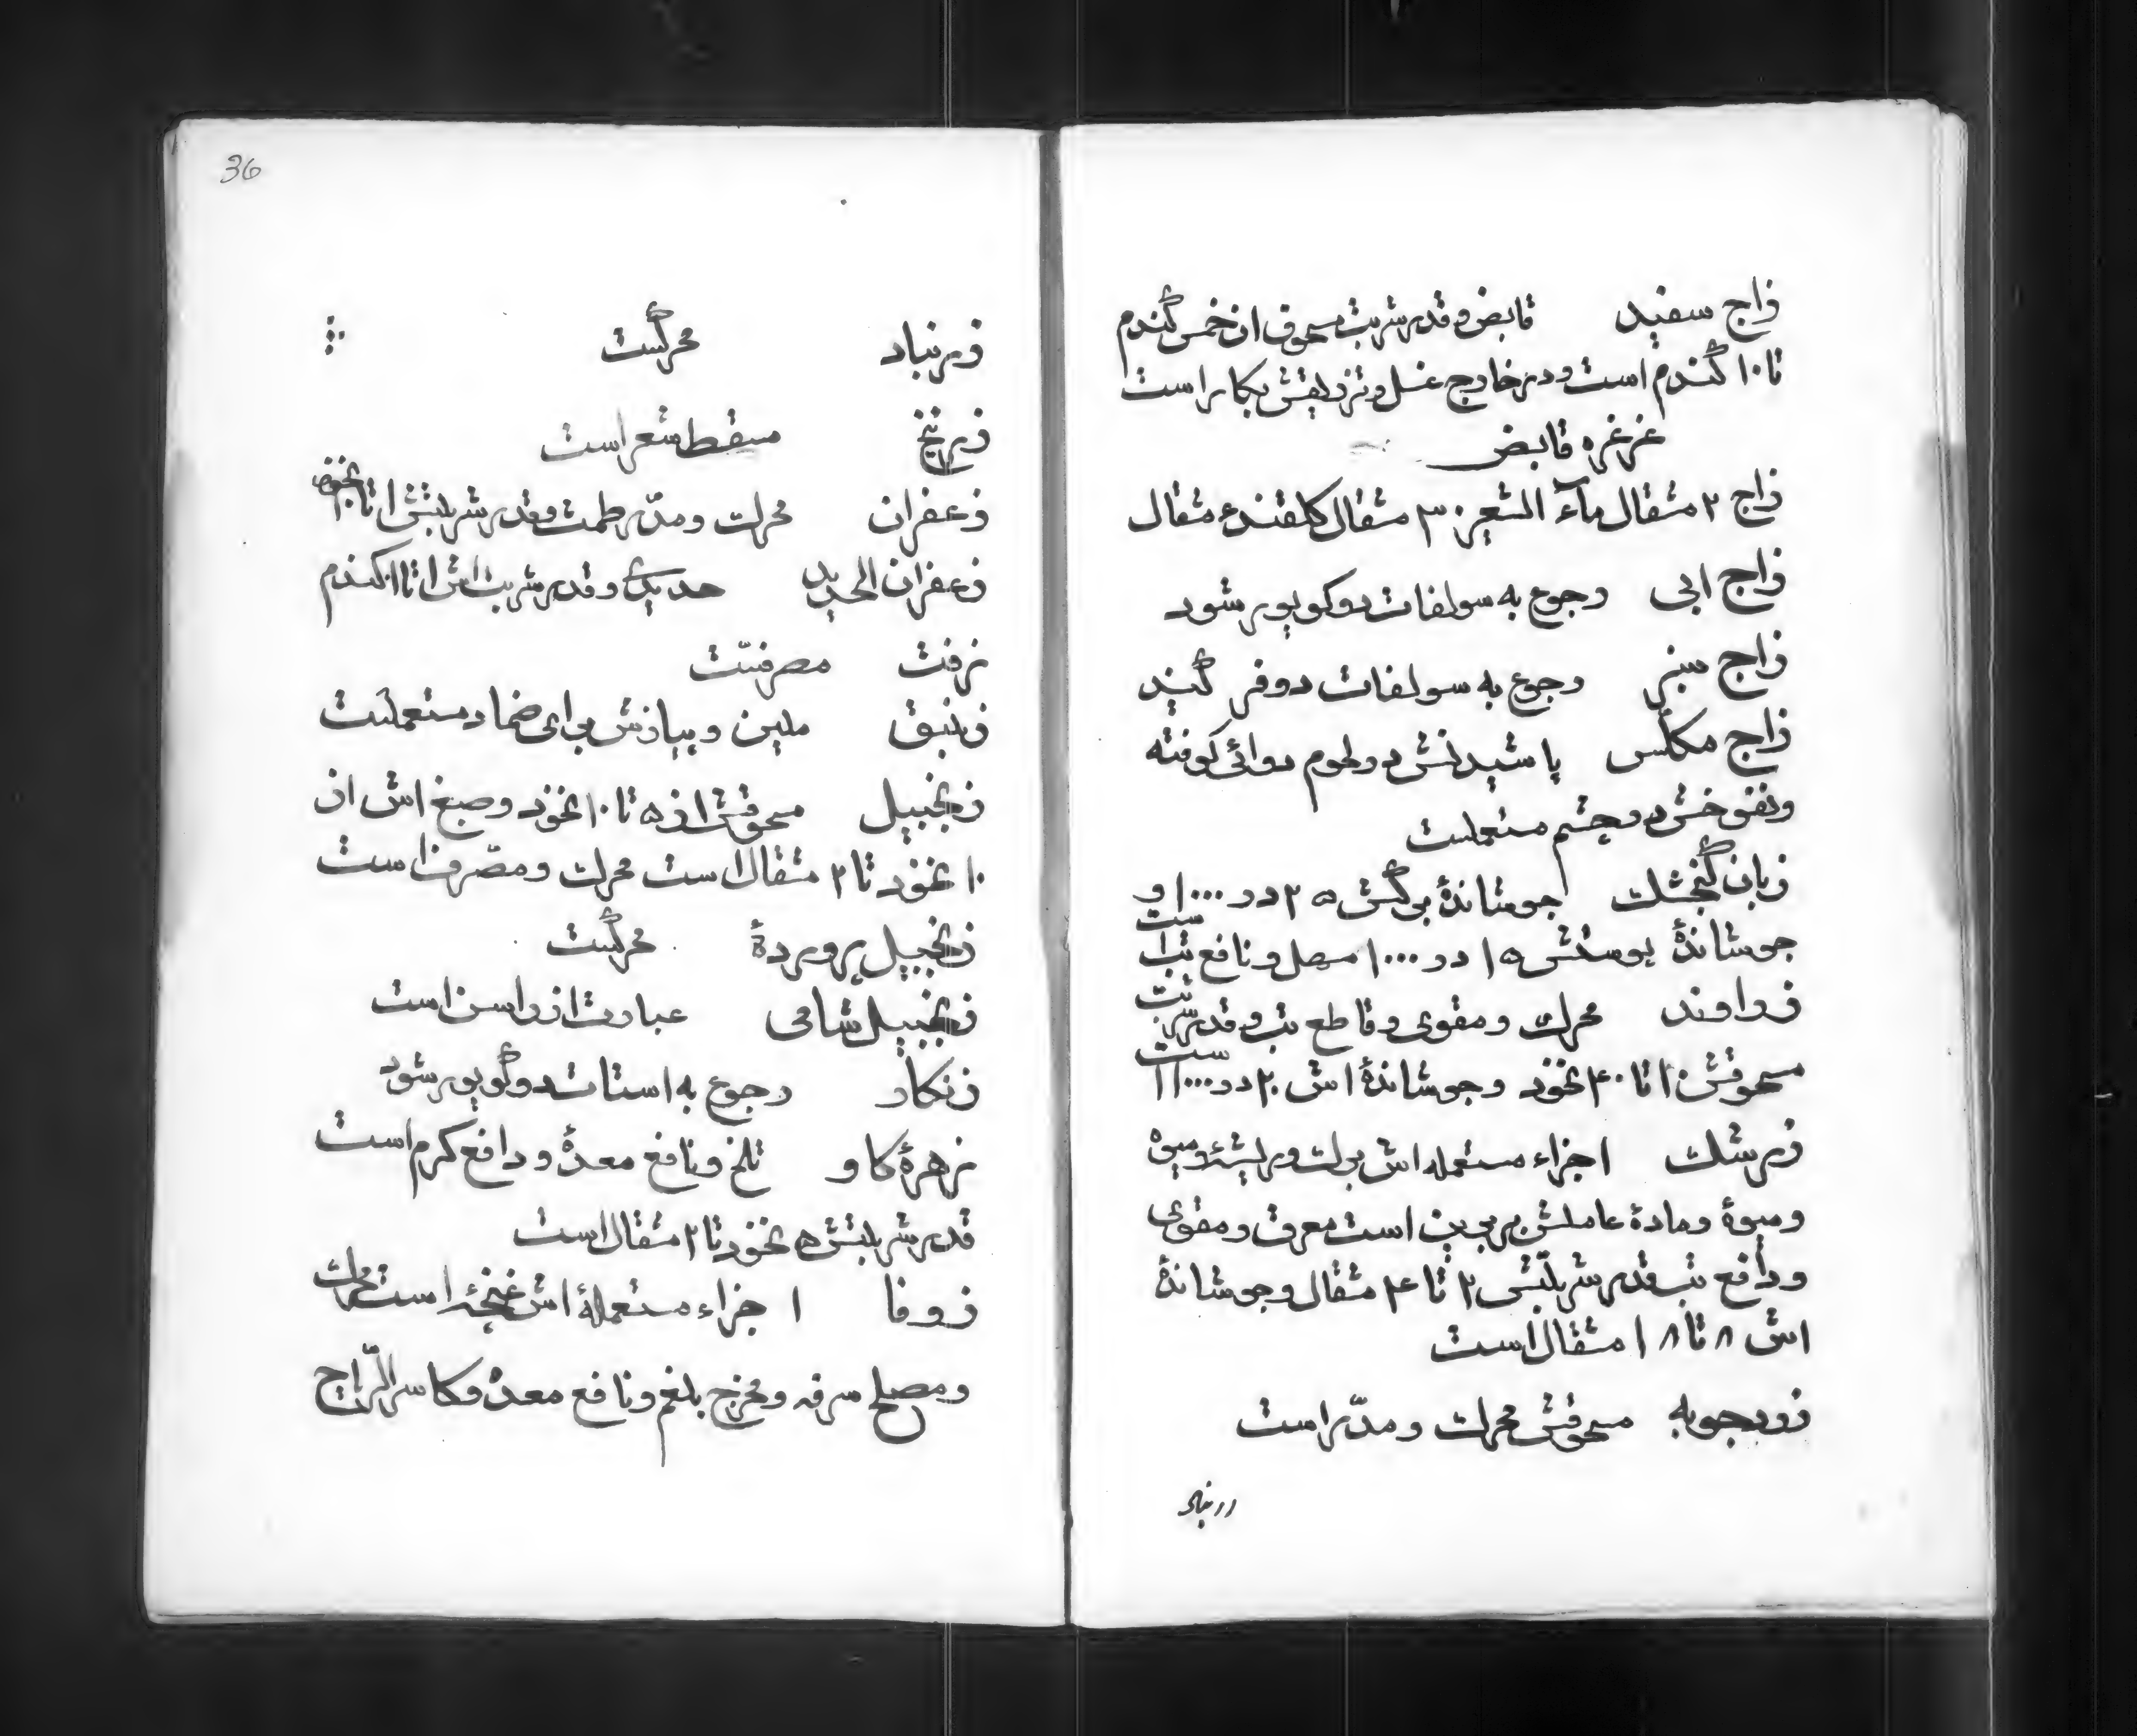 زاج سفید قابض و قدر شربت مسحوق از خمس گندم
تا ۱۰ گندم است و در خارج غسل و تزریقش بکار است
غرغره قابض
زاج ۲ مثقال ماء الشعیر ۳۰ مثقال گلقند ۴ مثقال
زاج ابی رجوع به سولفات دوکویور شود
زاج سبز رجوع به سولفات دوفر کنید
زاج مکلس پاشیدنش در لحوم روائی کوفته
ونفوخش در چشم مستعملست
زبان گنجشك جوشاندۀ برگش ۲۵ در ۱۰۰۰ و
جوشاندۀ پوستش ۱۵ در ۱۰۰۰ مسهل و نافع تب است
زراوند محرك و مقوی و قاطع تب و قدر شربت
مسحوقش ۱۰ تا ۴۰ نخود و جوشاندۀ اش ۲۰ در ۱۰۰۰ است
زرشك اجزاء مستعمله اش برك و ریشۀ و میوه
و میوۀ و مادۀ عاملش بربرین است معرق و مقوی
و دافع تب قدر شربتش ۲ تا ۴ مثقال و جوشاندۀ
اش ۸ تا ۱۸ مثقال است
زردجوبه مسحوقش محرك و مدّر است
زرنباد
36
زرنباد محرکست
زرنیخ مسقط شعر است
زعفران محرك و مدّر طمث و قدر شربتش ۱ تا ۲ نخود
زعفران الحدید حدیدی و قدر شربت اش ۱ تا ۱۰ کندم
زفت مصرفست
زنبق ملین و پیازش برای ضماد مستعملست
زنجبیل مسحوقش از ۵ تا ۱۰ نخود و صبغ اش از
۱۰ نخود تا ۲ مثقال است محرك و مصّرف است
زنجبیل پروردۀ محرکست
زنجبیل شامی عبارت از راسن است
زنکار رجوع به استات دوکویور شود
زهرۀ کاو تلخ و نافع معدۀ و دافع کرم است
قدر شربتش ۵ نخود تا ۲ مثقال است
زوفا اجزاء مستعملۀ اش غنچۀ است محرك
و مصلح سرفه و مخرج بلغم و نافع معدۀ و کاسر الرّیاح